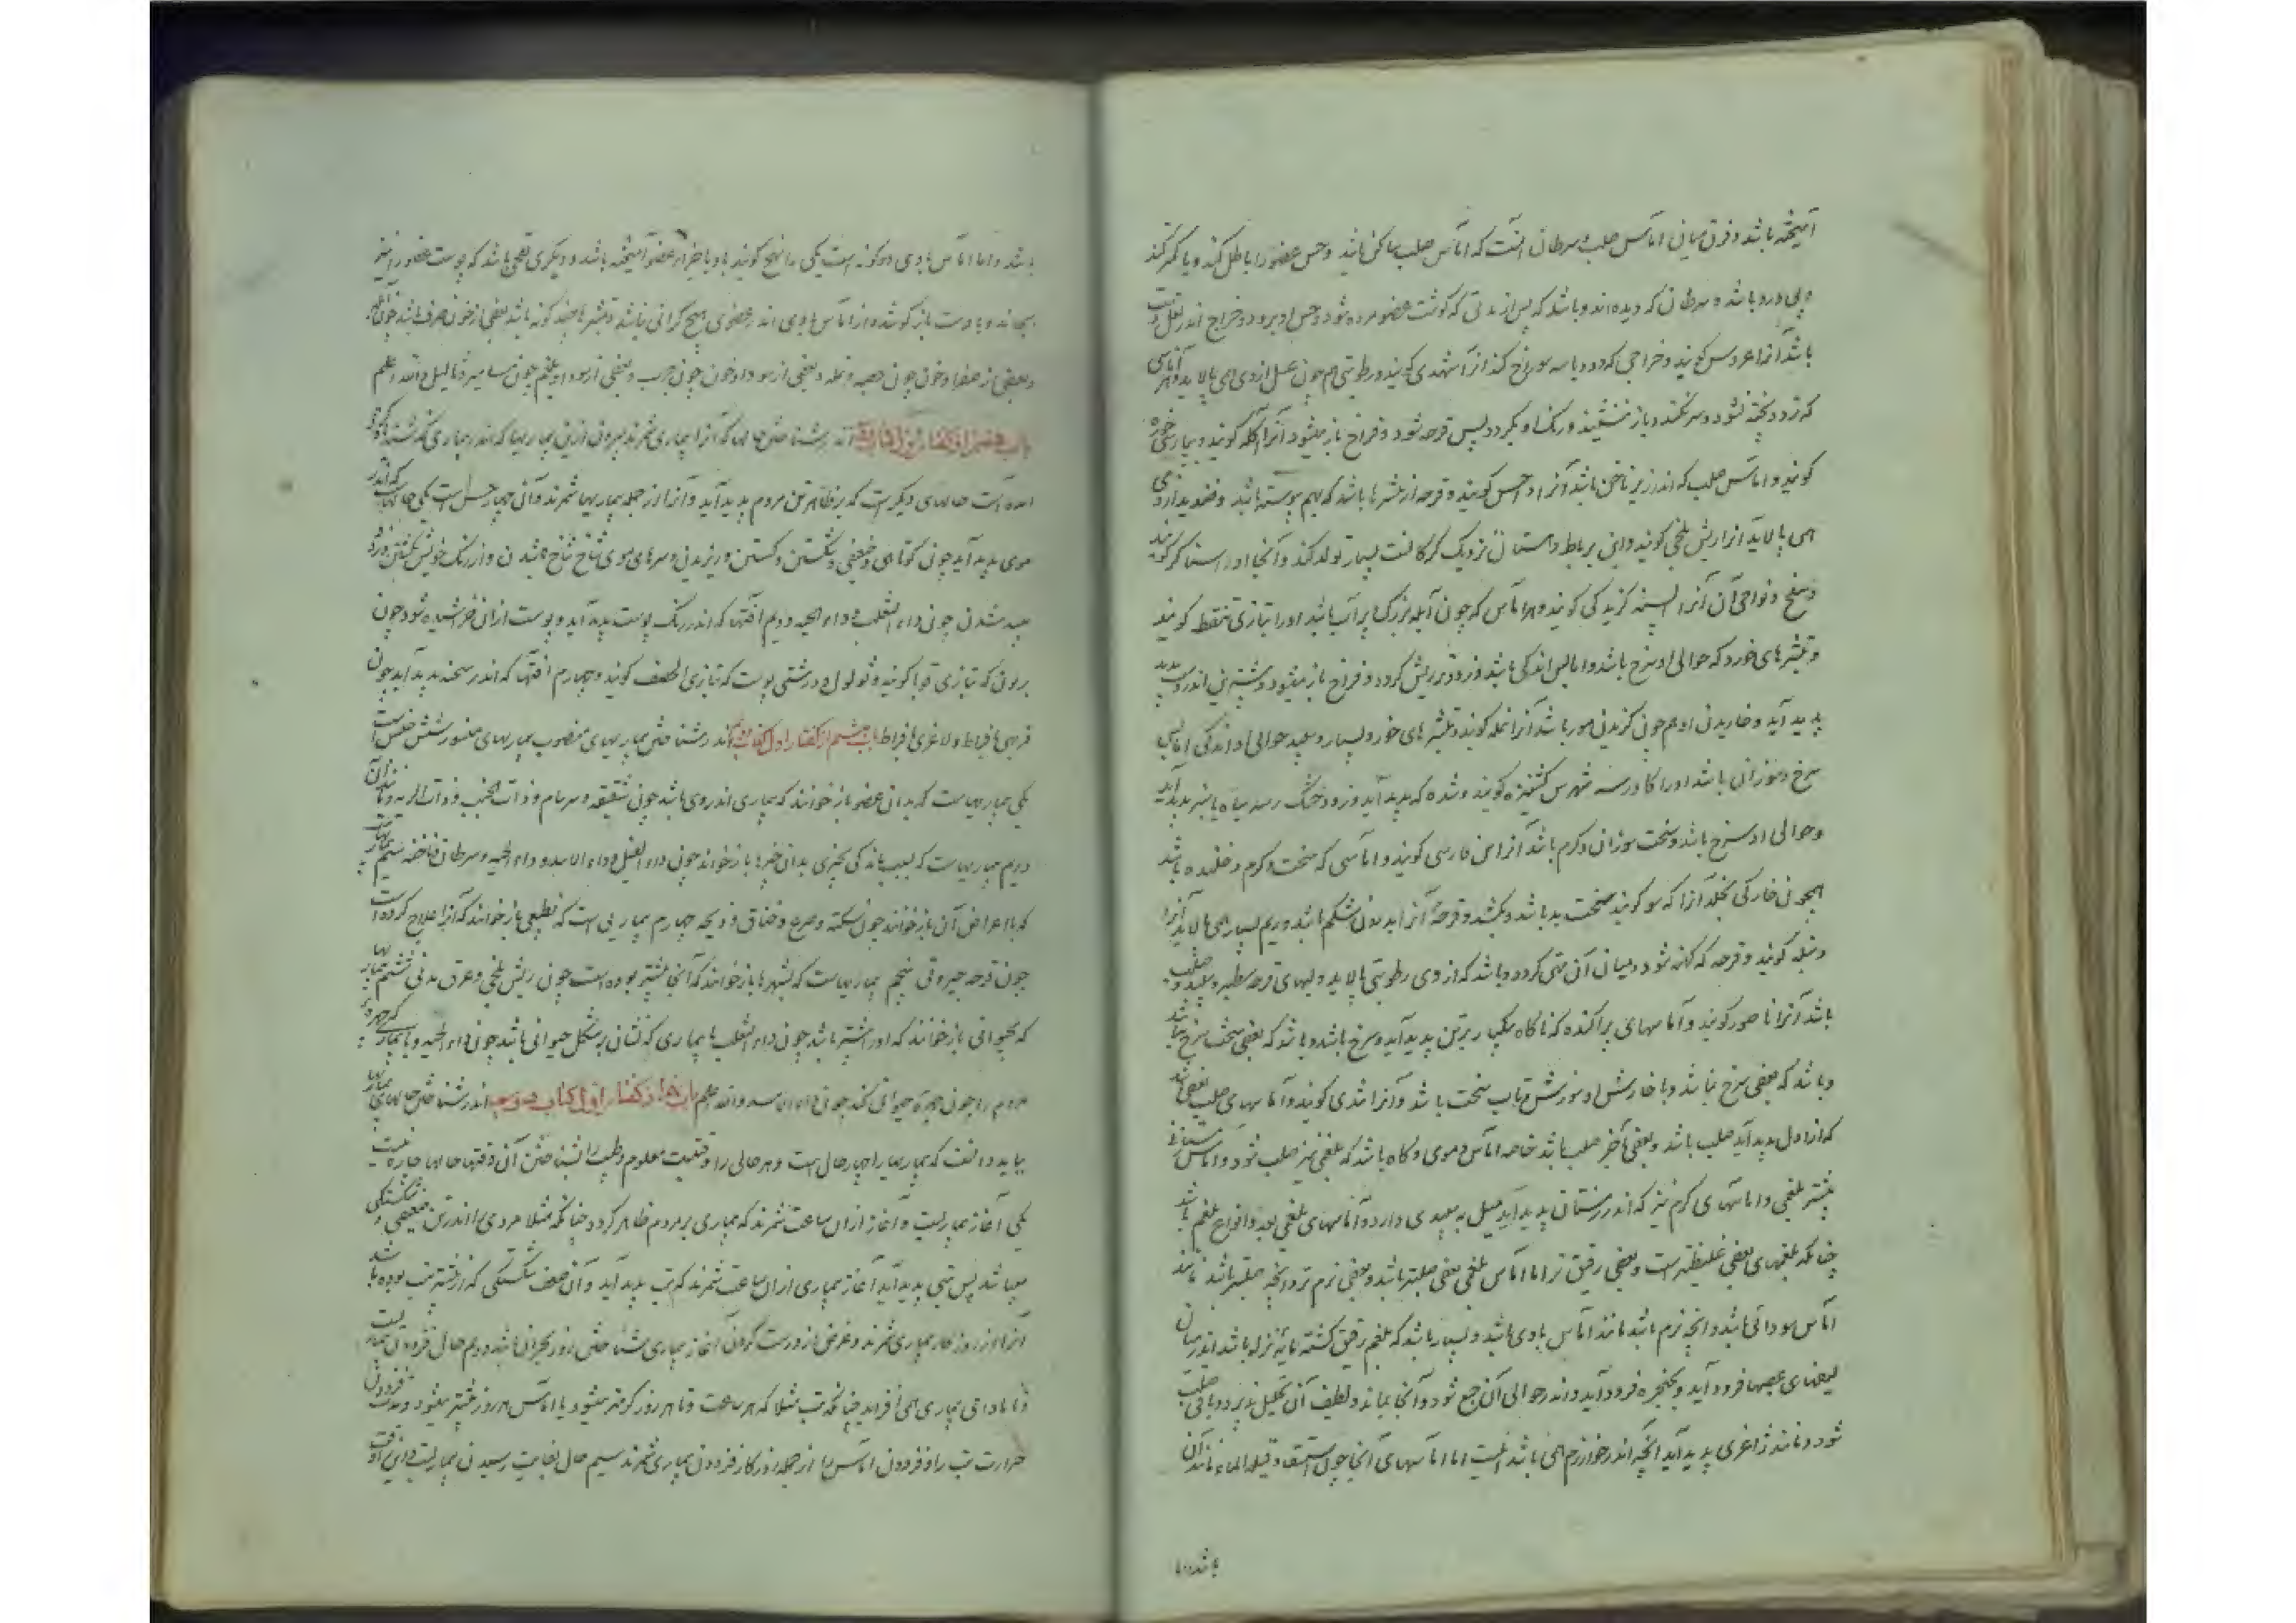 آمیخته باشد و فرق میان اماس صلب و سرطان آنست که اماس صلب ساکن باشد و حس عضو را باطل کند و یا کمتر کند
و بی درد باشد و سرطان که دیده اند و باشد که پس از مدتی که گوشت عضو مرده شود و حس او برود و خراج اندر
باشد آنرا عروس گویند و خراجی که دو و یا سه سوراخ کند آنرا شهدی گویند و رطوبتی هم چون عسل از وی همی پالاید و هر آماسی
که زود پخته نشود و سر نکند و باز ننشیند و رنگ او بگردد پس قرحه شود و فراخ باز میشود آنرا آکله گویند و بپارسی خوره
گویند و اماس صلب که اندر زیر ناخن باشد آنرا داحس گویند و قرحه از بثرها باشد که بهم پیوسته باشد و
همی پالاید آنرا ریش بلخی گویند و این بر باط و استان نزدیک گرکانت بسیار تولد کند و آنجا او را
و بلخ و نواحی آن آنرا پشه گزیدگی گویند و هر اماس که چون آبله بزرگ پر آب باشد او را بتازی منفط گویند
و بثرهای خورد که حوالی او سرخ باشد و با اماس اندکی باشد و زود بر ریش گردد و فراخ باز میشود و بیشترین اندر
پدید آید و خاریدن او هم چون گزیدن مور باشد آنرا نمله گویند و بثرهای خورد و بسیار و سپید حوالی او اندکی اماس
سرخ و سوزان باشد او را کاورسه گویند و بثره که پدید آید و زود خشک ریشه سیاه یا سبز پدید آید
و حوالی او سرخ باشد و سخت سوزان و گرم باشد آنرا آتش فارسی گویند و اماسی که سخت گرم و خلنده باشد
همچون خار که بخلد آنرا که سو گویند سخت بد باشد و بکشد و قرحه آنرا شکم باشد و ریم بسیار همی پالاید آنرا
دبیله گویند و قرحه که کهنه شود و میان آن تهی گردد و باشد که از وی رطوبتی پالاید و لبهای قرحه سطبر و سپید و صلب
باشد آنرا ناصور گویند و آماسهای پراکنده که ناگاه بیکبار بر تن پدید آید و سرخ باشد و باشد که بعضی سخت سرخ باشد
و باشد که بعضی سرخ نباشد و با خارش و سوزش و تاب سخت باشد و آنرا شری گویند و آماسهای صلب بعضی باشد
که از اول پدید آید صلب باشد و بعضی بآخر صلب باشد خاصه اماس دموی و گاه باشد که بلغمی نیز صلب شود و اماس
بیشتر بلغمی و اماسهای گرم نیز که اندر زمستان پدید آید میل به سپیدی دارد و آماسهای بلغمی بعدد انواع بلغم باشد
چنانکه بلغمهای بعضی غلیظتر است و بعضی رقیق تر اما اماس بلغمی بعضی صلبتر باشد و بعضی نرم تر و آنچه صلبتر باشد مانند
اماس سودائی باشد و آنچه نرم باشد مانند اماس بادی باشد و بسیار باشد که بلغم رقیق گشته مایه نزله باشد اندر میان
لیفهای عصبها فرود آید و بحنجره فرود آید و اندر حوالی آن جمع شود و آنجا بماند و لطیف آن تحلیل پذیرد و باقی صلب
شود و مانند ژاغری پدید آید آنچه اندر خوارزم همی باشد اینست اما اماسهای آبی چون استسقا و قیلة الماء و مانند آن
باشد و اما
باشد و اما اماس بادی دو گونه است یکی را تهبج گویند باد با جزاء عضو آمیخته باشد و دیگری نفخ باشد که پوست عضو را نیز
بجهاند و با دست باز کوشد و از اماس بادی اندر عضوی هیچ گرانی نباشد و بثرها چند گونه باشد بعضی از خون صرف باشد چون
و بعضی از صفرا و خون چون حصبه و نمله و بعضی از سودا و خون چون جرب و بعضی از سودا و بلغم چون مسامیر و ثالیل و الله اعلم
باب هفتم از گفتار اول اندر شناختن حالها که آنرا بیماری شمرند بیرون ازین بیماریها که اندر بیماری گذشته یاد کرده
آمده است حالهای دیگر است که بر ظاهر تن مردم پدید آید و آنرا از جمله بیماریها شمرند و آن چهار جنس است یکی حالهاست که اندر
موی پدید آید چون کوتاهی و ضعیفی و شکستن و گسستن و ریزیدن و سرهای موی شاخ شاخ شدن و از رنگ خویش بگشتن و زود
سپید شدن چون داء الثعلب و داء الحیه دویم آفتها که اندر رنگ پوست پدید آید و پوست از آن خراشیده شود چون
بریون که بتازی قوبا گویند و ثولول و درشتی پوست که بتازی الحصف گویند و چهارم آفتها که اندر سحنه پدید آید چون
فربهی بافراط و لاغری بافراط باب هشتم از گفتار اول از کتاب دوم اندر شناختن بیماریهای منسوب بیماریهای منسوب شش جنس است
یکی بیماریهاست که بدان عضو باز خوانند که بیماری اندر وی باشد چون شقیقه و سرسام و ذات الجنب و ذات الریه و مانند آن
دویم بیماریهاست که بسبب مانندگی بچیزی بدان چیزها باز خوانند چون داء الفیل و داء الاسد و داء الحیه و سرطان و ناخنه سیم بیماریهاست
که با اعراض آن باز خوانند چون سکته و صرع و خناق و ذبحه چهارم بیماریی است که بطبیبی باز خوانند که آنرا علاج کرده است
چون قرحه خیرونی پنجم بیماریهاست که بشهرها باز خوانند که آنجا بیشتر بوده است چون ریش بلخی و عرق مدنی ششم بیماریها
که بحیوانی باز خوانند که او را بیشتر باشد چون داء الثعلب یا بیماری که نشان بر شکل حیوانی باشد چون داء الحیه و یا بیماری که چهره
مردم را چون چهره حیوانی کند چون داء الاسد و الله اعلم باب نهم از گفتار اول از کتاب دوم اندر شناختن حالهای بیماریها
بباید دانست که بیماریها را چهار حال است و هر حالی را وقتیست معلوم و طبیب را بشناختن آن وقتها و حالها چاره نیست
یکی آغاز بیماریست و آغاز از آن ساعت شمرند که بیماری بر مردم ظاهر گردد چنانکه مثلا مردی را اندر تن ضعیفی و شکستگی
میباشد پس تبی پدید آید آغاز بیماری از آن ساعت شمرند که تب پدید آید و آن ضعف و شکستگی که از پیشتر تب بوده باشد
آنرا از روزگار بیماری نشمرند و غرض از درست کردن آغاز بیماری شناختن روز بحران باشد دویم حال فزودن بیماریست
و آن تا مادامی بیماری همی افزاید چنانکه تب مثلا که هر ساعت و تا هر روز گرمتر میشود یا اماس هر روز بیشتر میشود و مدت فزودن
حرارت تب را و فزودن اماس را از جمله روزگار فزودن بیماری شمرند سیم حال بغایت رسیدن بیماریست و این آن وقت